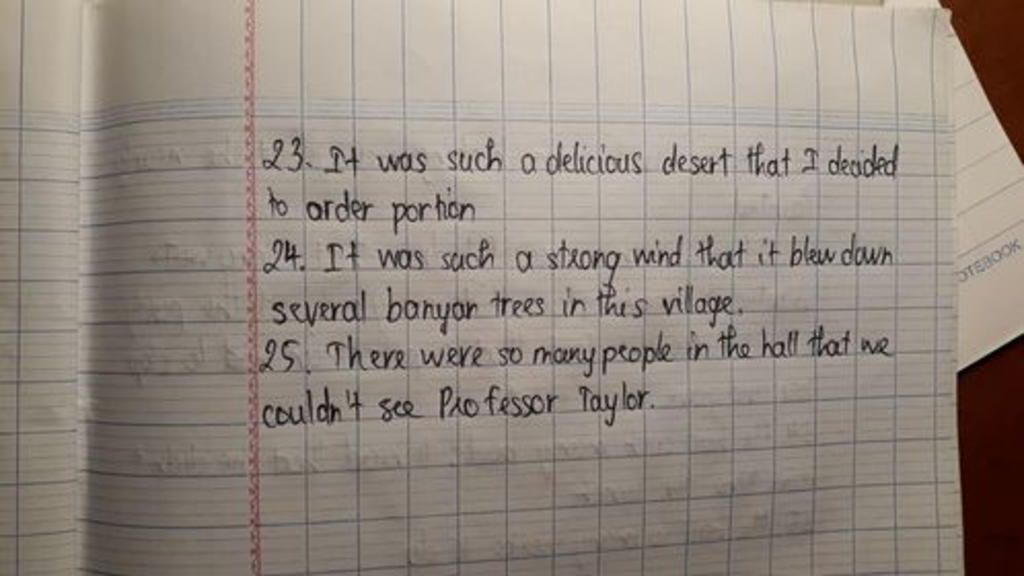 23. It was such a delicious desert that I decided
to order portion
24. It was such a strong wind that it blew down
several banyan trees in this village.
25. There were so many people in the hall that we
couldn't see Professor Taylor.
OTEBOOK